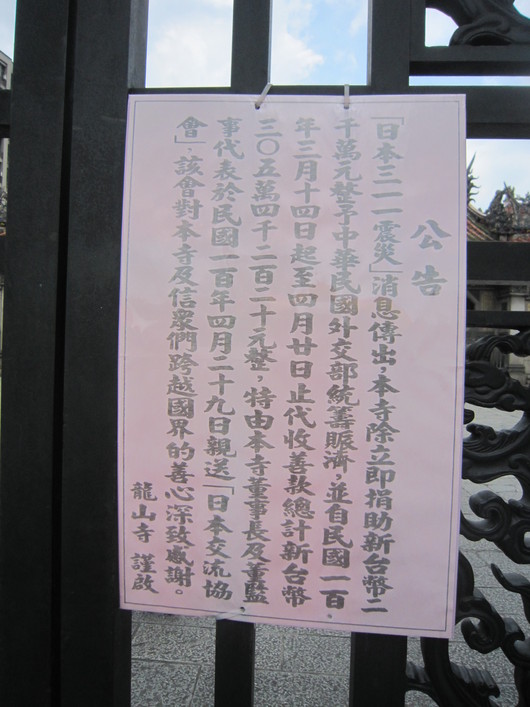 公告
「日本三一一震災」消息傳出，本寺除立即捐助新台幣二
千萬元整予中華民國外交部統籌賑濟，並自民國一百
年三月十四日起至四月廿日止代收善款總計新台幣
三〇五萬四千二百二十元整，特由本寺董事長及董監
事代表於民國一百年四月二十九日親送「日本交流協
會」，該會對本寺及信眾們跨越國界的善心深致感謝。
龍山寺 謹啟